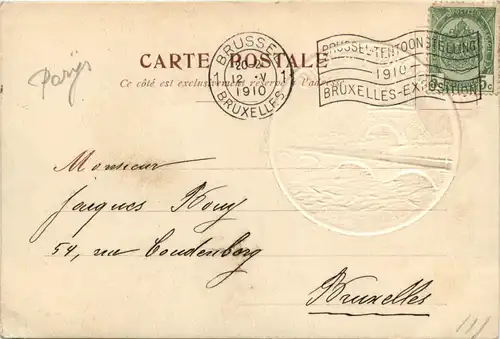 CARTE POSTALE
Ce côté est exclusivement réservé à l'adresse
BRUSSEL
1 20- 1
12 -V
1910
BRUXELLES
BRUSSEL-TENTOONSTELLING
1910
BRUXELLES-EXPOSITION
5 5c
Parijs
Monsieur
Jacques Rouy
54, rue Coudenberg
Bruxelles